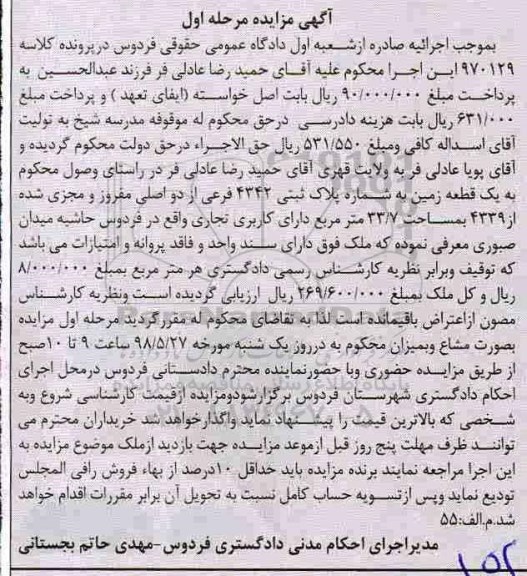 آگهی مزایده مرحله اول
بموجب اجرائیه صادره ازشعبه اول دادگاه عمومی حقوقی فردوس درپرونده کلاسه
۹۷۰۱۲۹ این اجرا محکوم علیه آقای حمید رضا عادلی فر فرزند عبدالحسین به
پرداخت مبلغ ۹۰/۰۰۰/۰۰۰ ریال بابت اصل خواسته (ایفای تعهد ) و پرداخت مبلغ
۶۳۱/۰۰۰ ریال بابت هزینه دادرسی درحق محکوم له موقوفه مدرسه شیخ به تولیت
آقای اسداله کافی ومبلغ ۵۳۱/۵۵۰ ریال حق الاجراء درحق دولت محکوم گردیده و
آقای پویا عادلی فر به ولایت قهری آقای حمید رضا عادلی فر در راستای وصول محکوم
به یک قطعه زمین به شماره پلاک ثبتی ۴۳۴۲ فرعی از دو اصلی مفروز و مجزی شده
از ۴۳۳۹ بمساحت ۳۳/۷ متر مربع دارای کاربری تجاری واقع در فردوس حاشیه میدان
صبوری معرفی نموده که ملک فوق دارای سند واحد و فاقد پروانه و امتیازات می باشد
که توقیف وبرابر نظریه کارشناس رسمی دادگستری هر متر مربع بمبلغ ۸/۰۰۰/۰۰۰
ریال و کل ملک بمبلغ ۲۶۹/۶۰۰/۰۰۰ ریال ارزیابی گردیده است ونظریه کارشناس
مصون ازاعتراض باقیمانده است لذا به تقاضای محکوم له مقررگردید مرحله اول مزایده
بصورت مشاع وبمیزان محکوم به درروز یک شنبه مورخه ۹۸/۵/۲۷ ساعت ۹ تا ۱۰صبح
از طریق مزایده حضوری وبا حضورنماینده محترم دادستانی فردوس درمحل اجرای
احکام دادگستری شهرستان فردوس برگزارشودومزایده ازقیمت کارشناسی شروع وبه
شخصی که بالاترین قیمت را پیشنهاد نماید واگذارخواهدشد خریداران محترم می
توانند ظرف مهلت پنج روز قبل ازموعد مزایده جهت بازدید ازملک موضوع مزایده به
این اجرا مراجعه نمایند برنده مزایده باید حداقل ۱۰درصد از بهاء فروش رافی المجلس
تودیع نماید وپس ازتسویه حساب کامل نسبت به تحویل آن برابر مقررات اقدام خواهد
شد.م.الف:۵۵
مدیراجرای احکام مدنی دادگستری فردوس-مهدی حاتم بجستانی